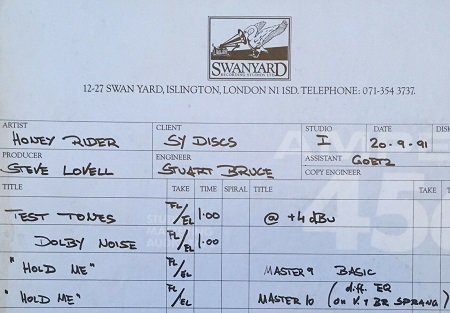 SWANYARD
RECORDING STUDIOS LTD.
12-27 SWAN YARD, ISLINGTON, LONDON N1 1SD. TELEPHONE: 071-354 3737.
ARTIST CLIENT STUDIO DATE
HONEY RIDER SY DISCS I 20-9-91
PRODUCER ENGINEER ASSISTANT GOETZ
STEVE LOVELL STUART BRUCE COPY ENGINEER
TITLE TAKE TIME SPIRAL TITLE TAKE
TEST TONES FL/EL 1.00 @ +4dBu
DOLBY NOISE FL/EL 1.00
"HOLD ME" FL/EL MASTER 9 BASIC
"HOLD ME" FL/EL MASTER 10 (diff. EQ on V. + BR SPRANG)